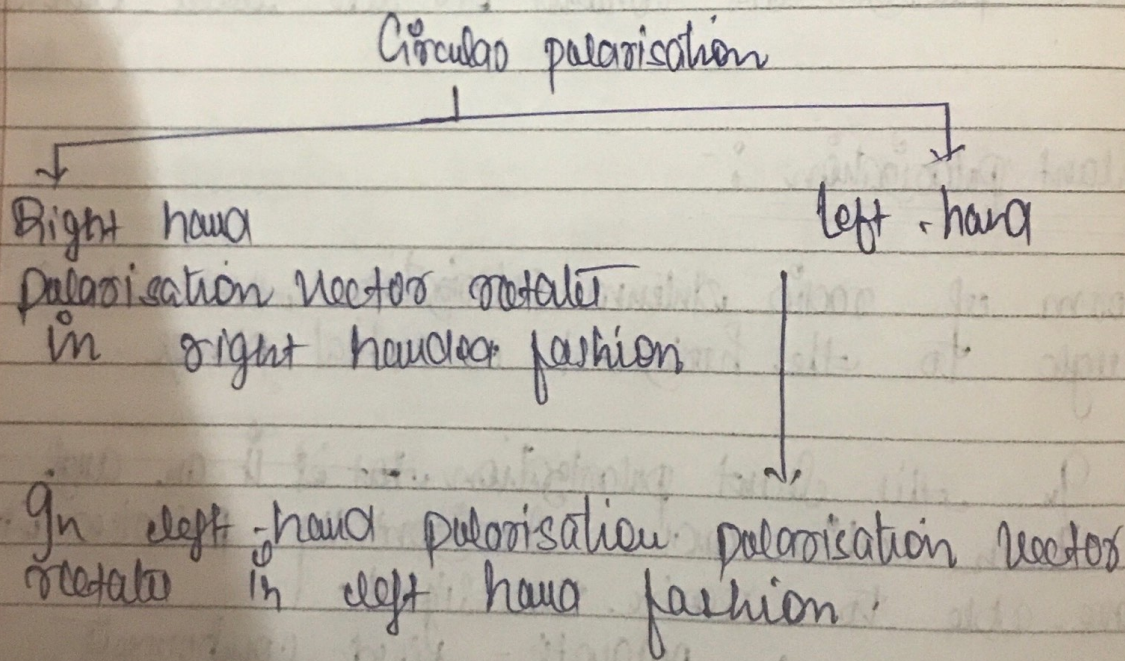 Circular polarisation
Right hand
left - hand
Polarisation vector rotates
in right handed fashion
In left-hand polarisation polarisation vector
rotate in left hand fashion.